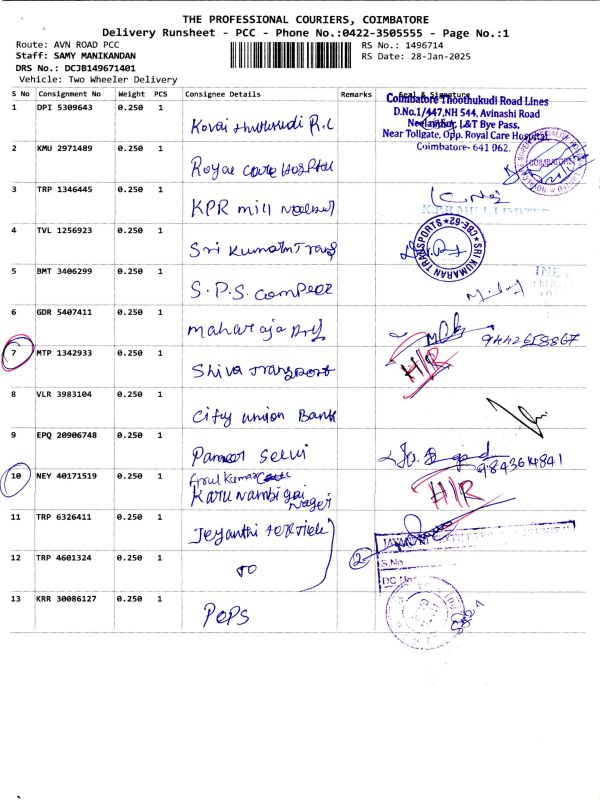 THE PROFESSIONAL COURIERS, COIMBATORE
Delivery Runsheet - PCC - Phone No.:0422-3505555 - Page No.:1
Route: AVN ROAD PCC
RS No.: 1496714
Staff: SAMY MANIKANDAN
RS Date: 28-Jan-2025
DRS No.: DCJB149671401
Vehicle: Two Wheeler Delivery
S No Consignment No Weight PCS Consignee Details Remarks Seal & Signature
1 DPI 5309643 0.250 1 Kovai
Coimbatore Thoothukudi Road Lines
D.No.1/447,NH 544, Avinashi Road
Neelambur, L&T Bye Pass,
Near Tollgate, Opp. Royal Care Hospital
Coimbatore- 641 062.
2 KMU 2971489 0.250 1 Royal care Hospital
COIMBATORE
3 TRP 1346445 0.250 1 KPR mill
K.P.R MILL LIMITED
4 TVL 1256923 0.250 1 Sri Kumaran Trans
SRI KUMARAN TRANSPORTS CBE-62
5 BMT 3406299 0.250 1 S.P.S.
6 GDR 5407411 0.250 1 maharaja
9442618867
7 MTP 1342933 0.250 1 Shiva Transport
H/R
8 VLR 3983104 0.250 1 City union Bank
9 EPQ 20906748 0.250 1 Panneer Selvi
9843614841
10 NEY 40171519 0.250 1 Arul Kumar
Karu nambigai
Nager
H/R
11 TRP 6326411 0.250 1 Jeyanthi textile
12 TRP 4601324 0.250 1 TO
2
S.No
DC No
13 KRR 30086127 0.250 1 PePS